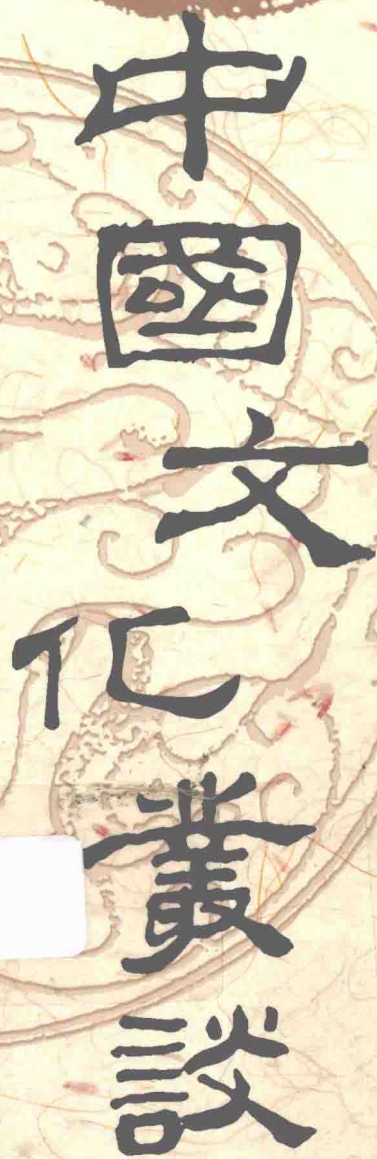 中國文化叢談